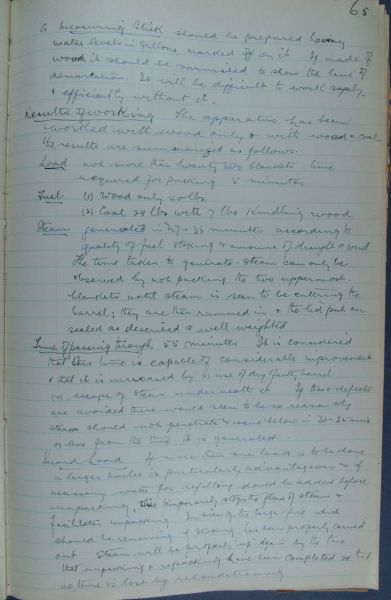 68
A measuring stick should be prepared having
water levels in gallons, marked off on it. If made of
wood it should be varnished to show the line of
demarcation. It will be difficult to work safely
& efficiently without it.
Results of working The apparatus has been
worked with wood only & with wood & coal
the results are summarised as follows.
Load not more than twenty two blankets time
required for packing 5 minutes
Fuel (1) Wood only 40 lbs.
(2) Coal 28 lbs with 7 lbs Kindling wood
Steam generated in 27-35 minutes according to
quality of fuel stoking & amount of draught & wind
The time taken to generate steam can only be
observed by not packing the two uppermost
blankets until steam is seen to be entering the
barrel; they are then rammed in & the lid put on
sealed as described & well weighted
Time of passing through 55 minutes It is considered
that this time is capable of considerable improvement
& that it is increased by (1) use of dry faulty barrel
(2) escape of steam underneath it If these defects
are avoided there would seem to be no reason why
steam should not penetrate & issue below in 30-35 mins
or less from the time it is generated.
Second Load If more than one load is to be done
a larger boiler is particularly advantageous & if
necessary water for refilling should be added before
unpacking, this temporarily stops the flow of steam &
facilitates unpacking. In view of the large fire which
should be remaining if stoking has been properly carried
out steam will be properly "up" again by the time
that unpacking & repacking have been completed so that
no time is lost by